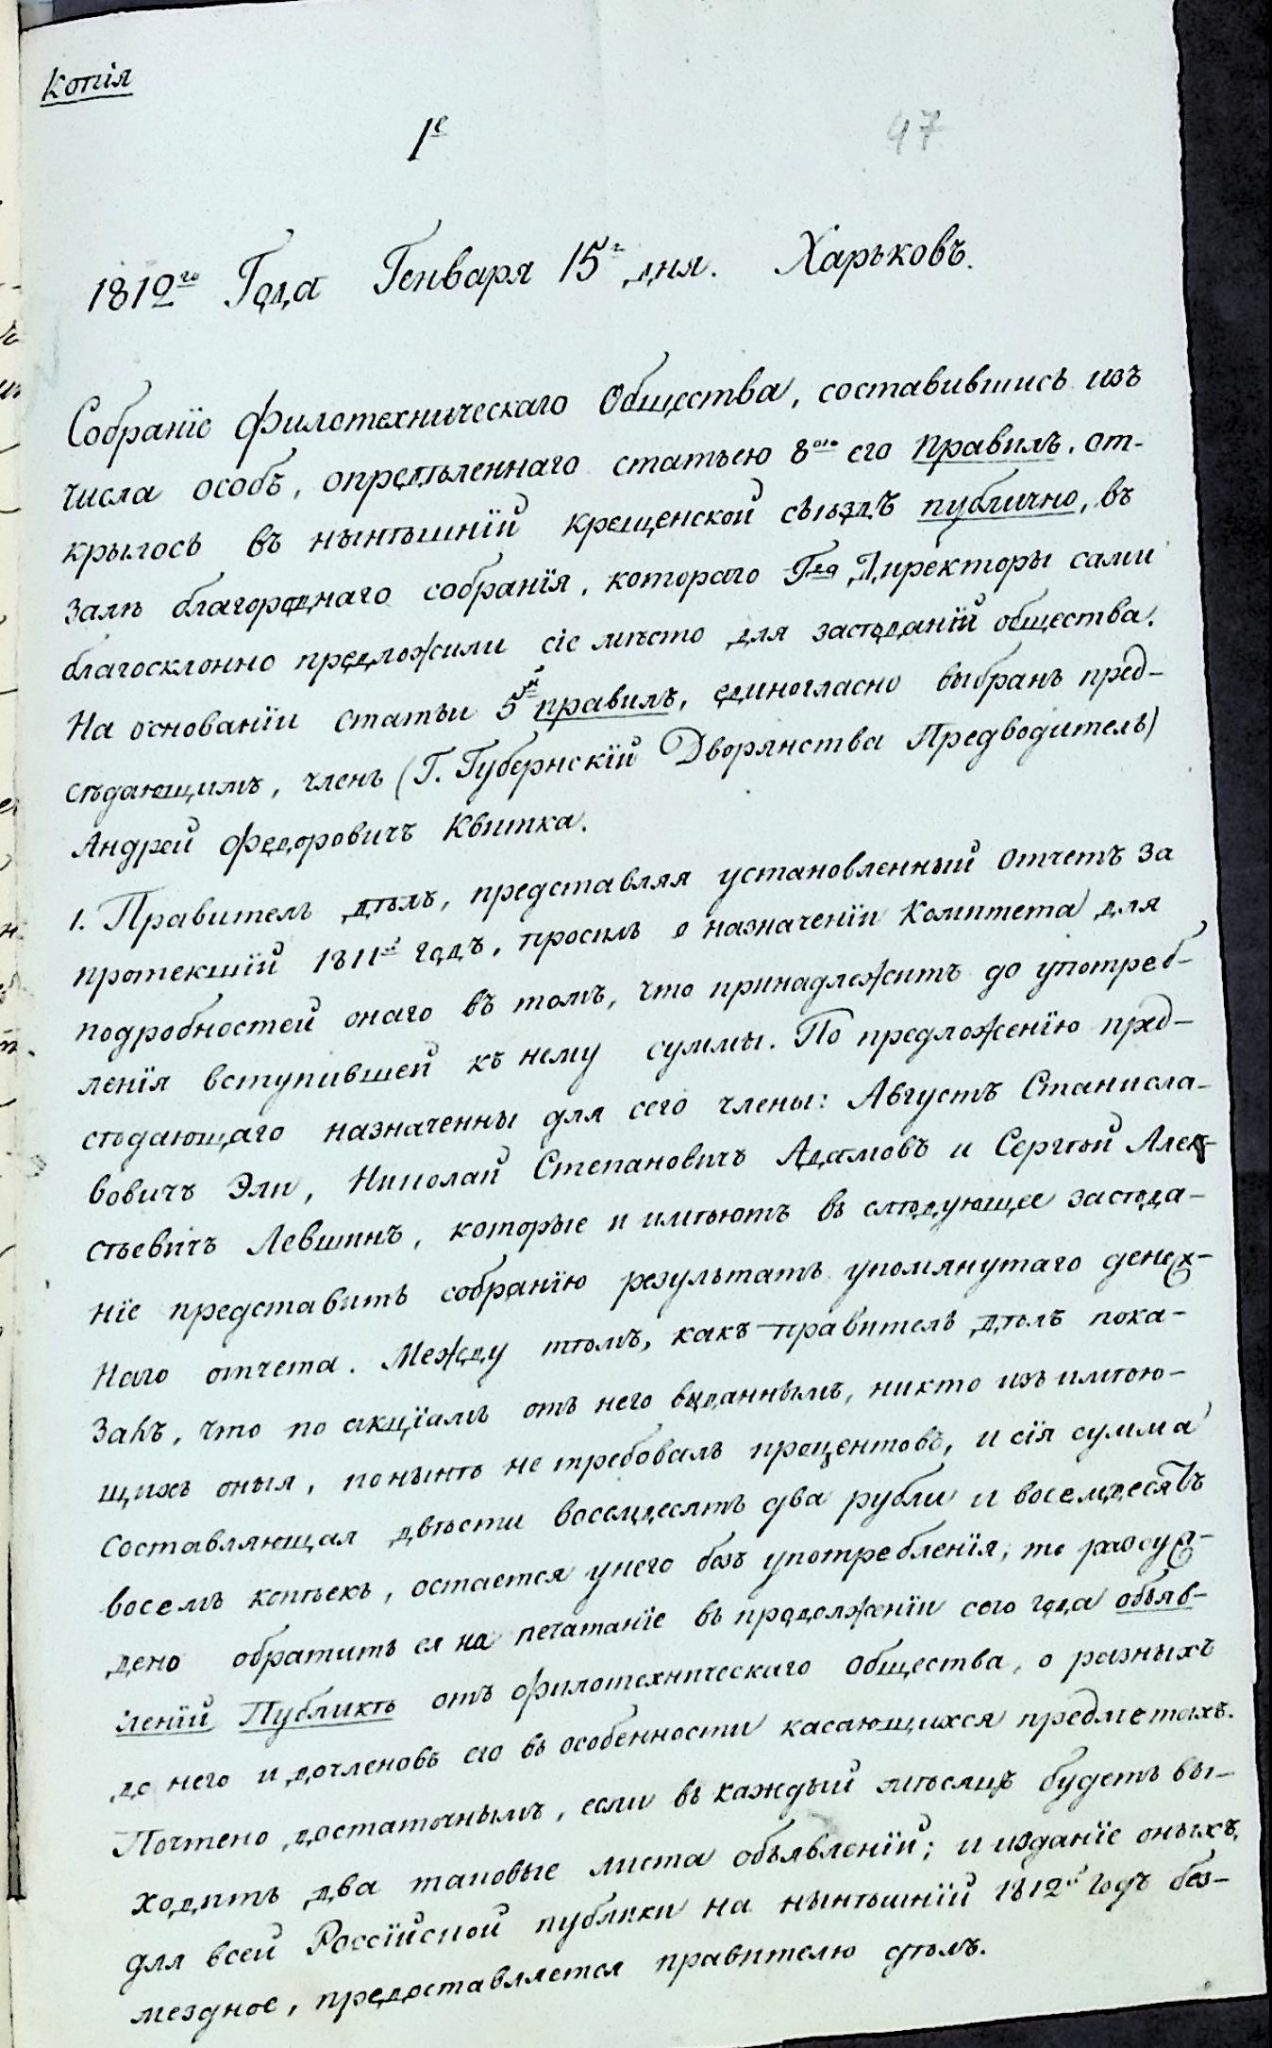 Копія
1е
47
1812го Года Генваря 15г дня. Харьковъ.
Собраніе Филотехническаго Общества, составившись изъ
числа особъ, опредѣленнаго статьею 8ою его правилъ, от-
крылось въ нынѣшній крещенской съѣздъ публично, въ
залѣ благороднаго собранія, котораго Гда Директоры сами
благосклонно предложили сіе мѣсто для засѣданій общества.
На основаніи статьи 5й правилъ, единогласно выбранъ пред-
сѣдающимъ, членъ (Г. Губернскій Дворянства Предводитель)
Андрей Федоровичъ Квитка.
1. Правитель дѣлъ, представляя установленный отчетъ за
протекшій 1811й годъ, просилъ о назначеніи Комитета для
подробностей онаго въ томъ, что принадлежитъ до употреб-
ленія вступившей къ нему суммы. По предложенію пред-
сѣдающаго назначенны для сего члены: Августъ Станисла-
вовичъ Эли, Николай Степановичъ Адамовъ и Сергѣй Алек-
сѣевичъ Левшинъ, которые и имѣютъ въ слѣдующее засѣда-
ніе представить собранію результатъ упомянутаго денеж-
наго отчета. Между тѣмъ, какъ правитель дѣлъ пока-
залъ, что по акціамъ отъ него выданнымъ, никто изъ имѣю-
щихъ оныя, понынѣ не требовалъ процентовъ, и сія сумма
составляющая двѣсти восемдесятъ два рубли и восемдесятъ
восемь копѣекъ, остается у него безъ употребленія, то разсуж-
дено обратить ея на печатаніе въ продолженіи сего года объяв-
леній Публикѣ отъ филотехническаго общества, о разныхъ
до него и дочленовъ его въ особенности касающихся предметахъ.
Почтено достаточнымъ, если въ каждый мѣсяцъ будетъ вы-
ходить два таковые листа объявленій; и изданіе оныхъ,
для всей Россійской публики на нынѣшній 1812й годъ без-
мездное, предоставляется правителю дѣлъ.